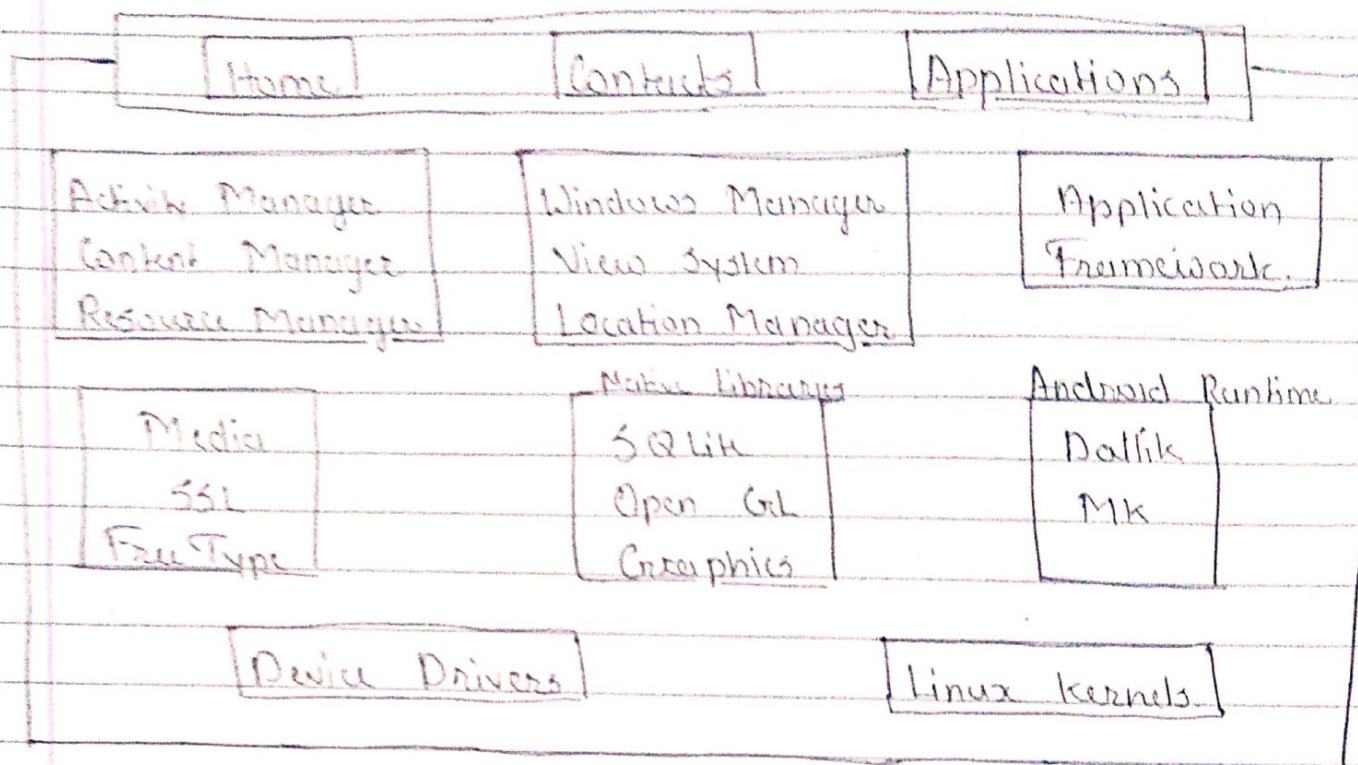 Home Contacts Applications
Activity Manager
Content Manager
Resource Manager
Windows Manager
View System
Location Manager
Application
Framework.
Media
SSL
Free Type
Native Libraries
SQLite
Open GL
Graphics
Android Runtime
Dallik
MK
Device Drivers
Linux Kernels.